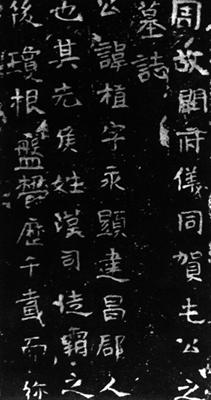 周故開府儀同賀屯公之
墓誌
公諱植字永顯建昌郡人
也其先侯姓漢司徒霸之
後瓊根盤鬱歷千載而弥